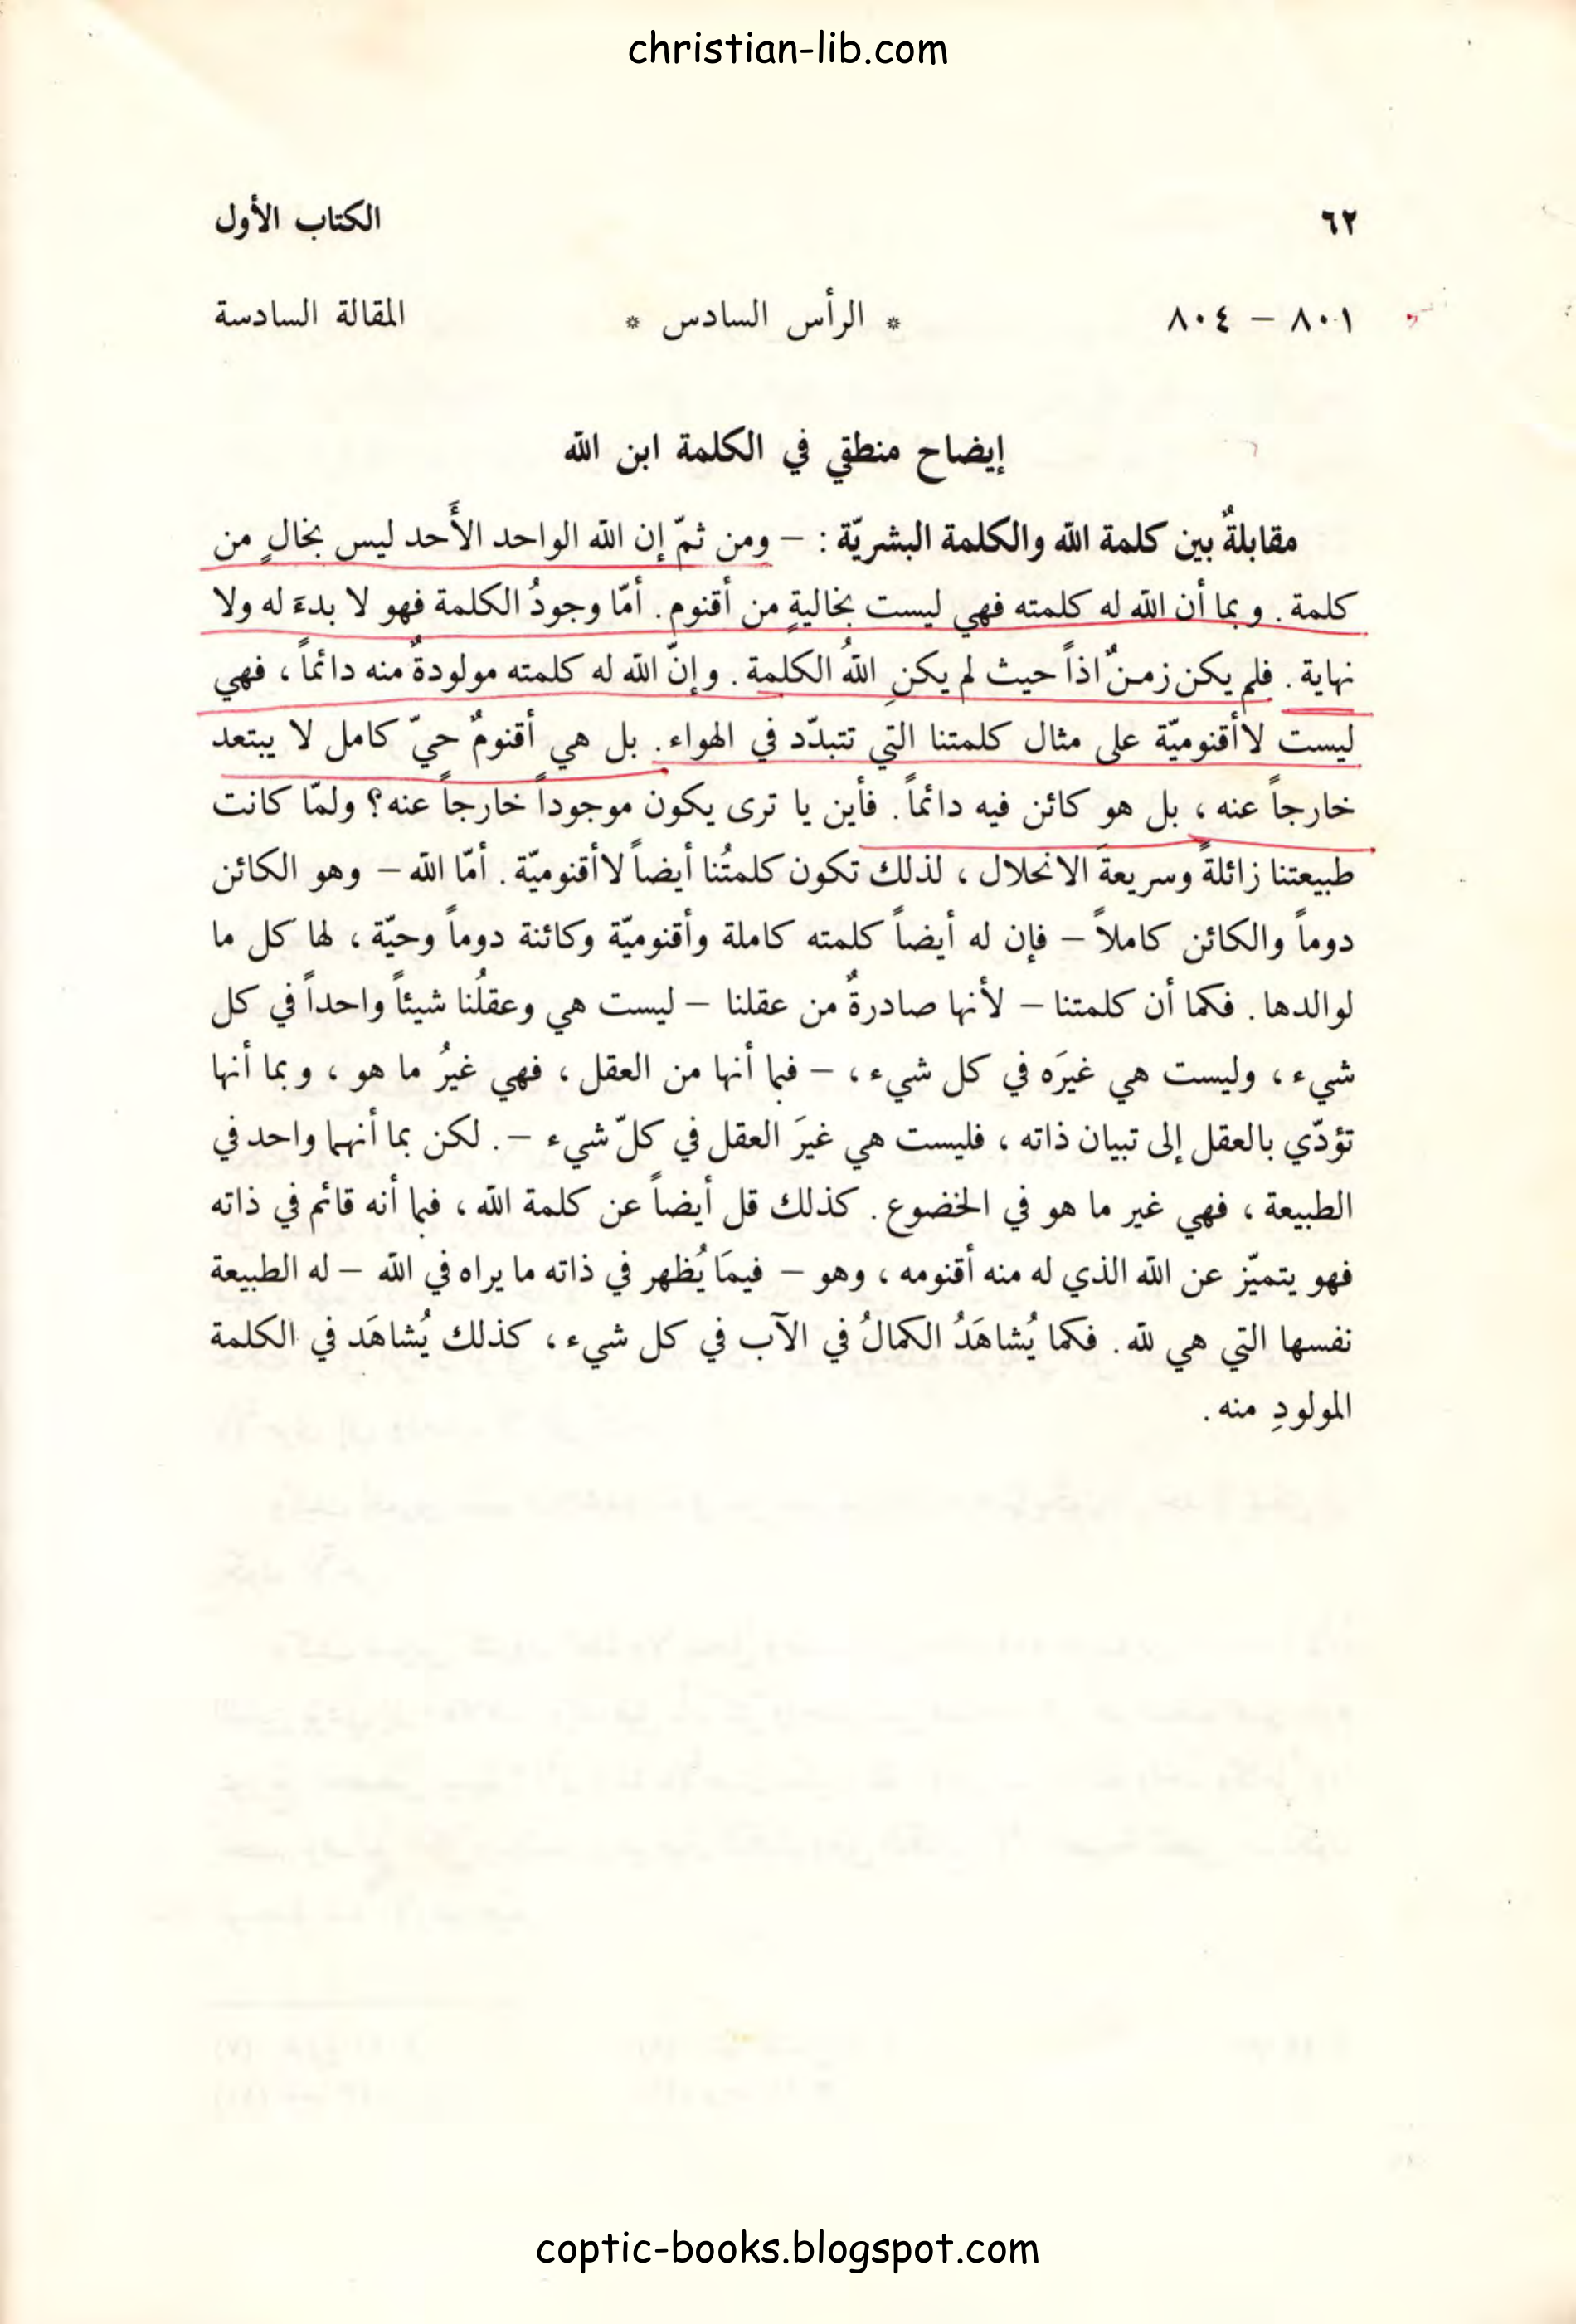 christian-lib.com
٦٢ الكتاب الأول
٨٠١ – ٨٠٤ * الرأس السادس * المقالة السادسة
إيضاح منطقي في الكلمة ابن الله
مقابلةٌ بين كلمة الله والكلمة البشريّة : – ومن ثمّ إن الله الواحد الأَحد ليس بخالٍ من
كلمة . و بما أن الله له كلمته فهي ليست بخاليةٍ من أقنوم . أمّا وجودُ الكلمة فهو لا بدءَ له ولا
نهاية . فلم يكن زمـنٌ اذاً حيث لم يكنِ اللهُ الكلمة . وإنّ الله له كلمته مولودةٌ منه دائماً ، فهي
ليست لاأقنوميّة على مثال كلمتنا التي تتبدّد في الهواء . بل هي أقنومٌ حيّ كامل لا يبتعد
خارجاً عنه ، بل هو كائن فيه دائماً . فأين يا ترى يكون موجوداً خارجاً عنه؟ ولمّا كانت
طبيعتنا زائلةً وسريعةَ الانحلال ، لذلك تكون كلمتُنا أيضاً لاأقنوميّة . أمّا الله – وهو الكائن
دوماً والكائن كاملاً – فإن له أيضاً كلمته كاملة وأقنوميّة وكائنة دوماً وحيّة ، لها كل ما
لوالدها . فكما أن كلمتنا – لأنها صادرةٌ من عقلنا – ليست هي وعقلُنا شيئاً واحداً في كل
شيء ، وليست هي غيرَه في كل شيء ، – فبما أنها من العقل ، فهي غيرُ ما هو ، و بما أنها
تؤدّي بالعقل إلى تبيان ذاته ، فليست هي غيرَ العقل في كلّ شيء –. لكن بما أنهما واحد في
الطبيعة ، فهي غير ما هو في الخضوع . كذلك قل أيضاً عن كلمة الله ، فبما أنه قائم في ذاته
فهو يتميّز عن الله الذي له منه أقنومه ، وهو – فيمَا يُظهر في ذاته ما يراه في الله – له الطبيعة
نفسها التي هي لله . فكما يُشاهَدُ الكمالُ في الآب في كل شيء ، كذلك يُشاهَد في الكلمة
المولودِ منه .
coptic-books.blogspot.com